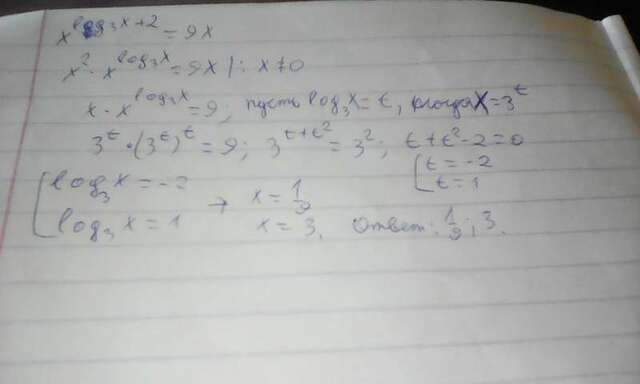 x^(log₃x+2) = 9x
x² · x^(log₃x) = 9x |: x≠0
x · x^(log₃x) = 9; пусть log₃x = t, тогда x = 3^t
3^t · (3^t)^t = 9; 3^(t+t²) = 3²; t+t²-2=0
[t = -2
[t = 1
[log₃x = -2 → x = 1/9
[log₃x = 1 x = 3. Ответ: 1/9; 3.